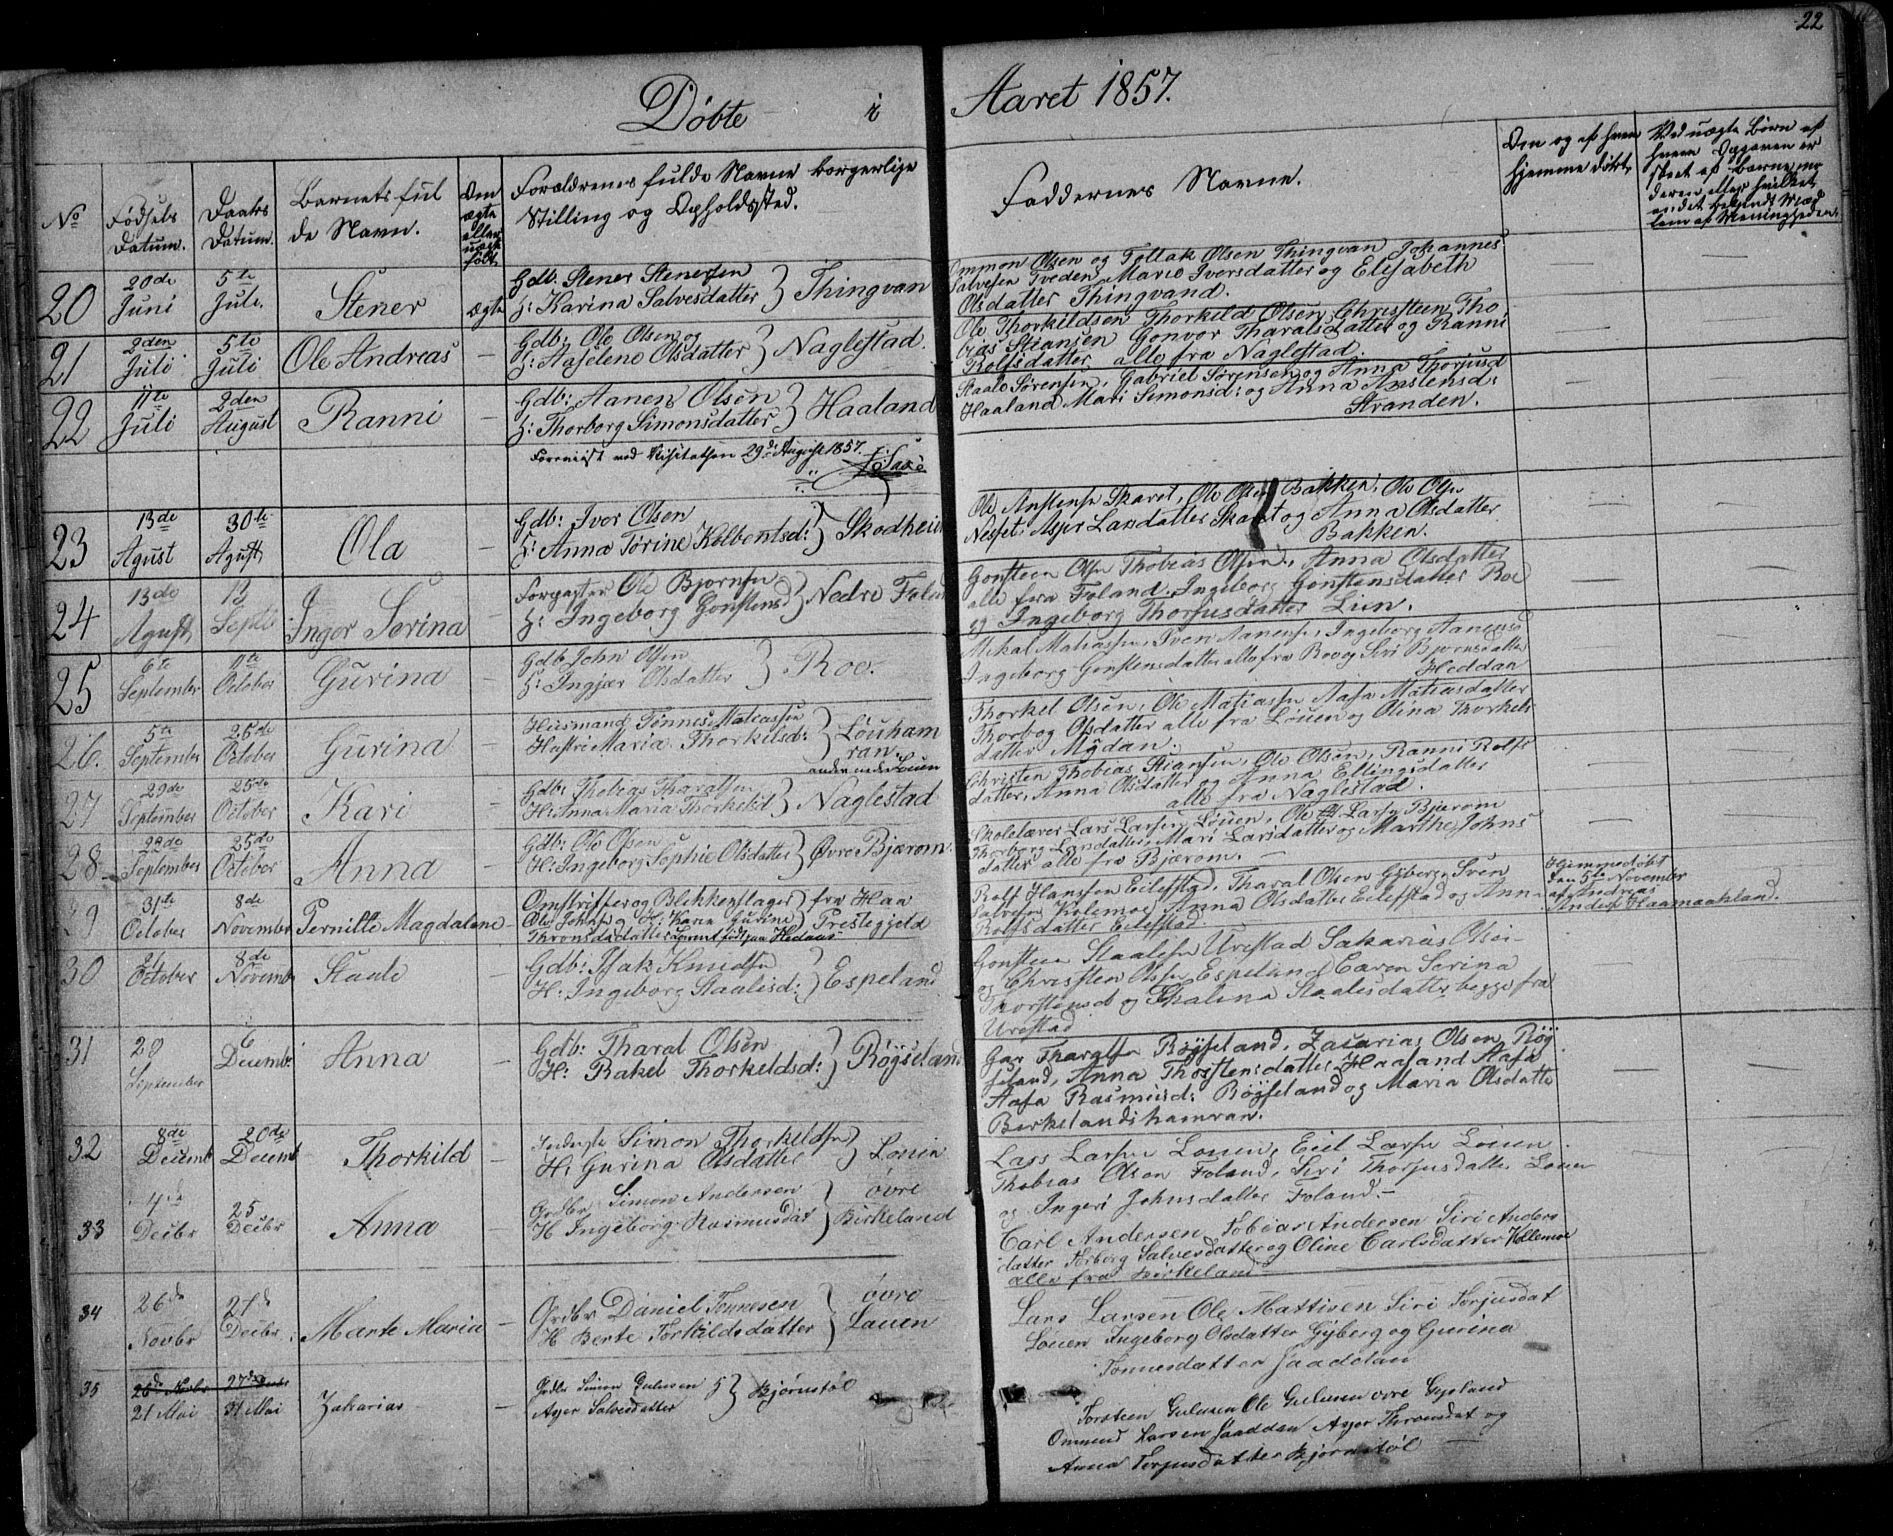 22
Döbte i Aaret 1857.
No
Födsels Datum.
Daabs Datum.
Barnets fulde Navn.
Om ægte eller uægte födt
Forældrenes fulde Navne borgerlige Stilling og Opholdssted.
Faddernes Navne.
Om og af hvem hjemme döbt.
Ved uægte Börn af hvem Opgaven er skeet af Barnemoderen eller hvilket
20 20de Juni 5te Jule. Stener ægte
Gdb. Stener Stenersen
H: Karina Salvesdatter } Thingvan
Ommon Olsen og Follak Olsen Thingvan Johannes
Salvesen Tveden, Marie Iversdatter og Elisabeth
Olsdatter Thingvand.
21 2den Juli 5te Juli Ole Andreas —
Gdb: Ole Olsen og
H: Aaselene Olsdatter } Naglestad.
Ole Thorkildsen Thorkild Olsen, Christeen Tho
bias Stiansen Gonvor Tharalsdatter og Ranni
Rolfsdatter alle fra Naglestad.
22 11te Juli 2den August Ranni —
Gdb: Aanen Olsen
H: Thorborg Simonsdatter } Haaland
Staale Sörensen, Gabriel Sörensen og Anna Thorjusd
Haaland Mari Simonsd: og Anna Anstensd:
Stranden.
Foreviist ved Visitatsen 29de August 1857.
23 13de Agust 30te Agust Ola —
Gdb: Iver Olsen
H: Anna Törine Kolbentsd: } Skodheim
Ole Anstensen Skaret, Ole Olsen Bakken, Ole Olsen
Neset, Asjer Larsdatter Skaret og Anna Olsdatter
Bakken.
24 13de Agust 13 Septb Inger Serina —
Forpagter Ole Bjornsen
H: Ingeborg Gonstensd } Nedre Foland
Gonsteen Olsen Thobias Olsen, Anna Olsdatter
alle fra Foland, Ingeborg Gonstensdatter Roe
og Ingeborg Thorjusdatter Lien.
25 6te September 11te October Gurina —
Gdb John Olsen
H: Ingjær Olsdatter } Roe.
Mikal Matiassen, Sven Aanensen, Ingeborg Aanensd
Ingeborg Gonstensdatter alle fra Roe og Siri Bjornsdatter
Heddan
26. 5te September 25de October Gurina —
Husmand Tönnes Matiassen
Hustri Maria Thorkilsd: } Löuham
ran.
under nedre Louen
Thorkel Olsen, Ole Matiassen Aasa Matiasdatter
Thorbog Olsdatter alle fra Löuen og Olina Thorkels
datter Mÿdan.
27 29de September 25de October Kari —
Gdb: Thobias Tharalsen
H: Anna Maria Thorkeld } Naglestad
Christen Thobias Stiansen, Ole Olsen, Ranni Rolfs
datter, Anna Olsdatter og Anna Ellingsdatter
alle fra Naglestad.
28 22de September 25de October Anna —
Gdb: Ole Olsen
H: Ingeborg Sophie Olsdatter } Övre Bjærom.
Skolelærer Lars Larsen Löuen, Ole Larsen Bjærom
Thorborg Larsdatter, Mari Larsdatter og Marthe Johns
datter alle fra Bjærom.
29 31te October 8de November Pernille Magdalene —
Omstriffer og Blekkenslager } fra Haa
Ole Johnsen og H: Karen Gurine } Prestegjeld
Thronsdatter
Rolf Hansen Eilefstad, Tharal Olsen Gÿberg, Sven
Salvesen Kolemoe, Anna Olsdatter Eilefstad og Anna
Rolfsdatter Eilefstad
Hjemmedöbt
den 5te November
af Andreas
Anders Haamaahland.
30 21 October 8de Novemb Staale —
Gdb: Isak Knudsen
H: Ingeborg Staalesd: } Espeland
Gonsteen Staalesen Urestad Sakarias Olsen
og Christen Olsen Espeland Caren Serina
Thorstensd og Thalina Staalesdatter begge fra
Urestad
31 29 September 6 Decemb: Anna —
Gdb: Tharal Olsen
H: Rakel Thorkeldsd: } Rögseland
Gar Tharalsen Röÿseland, Zacarias Olsen Röÿ
seland, Anna Thorstensdatter Haaland Aasa
Aasa Rasmusd: Röÿseland og Maria Olsdatte
Birkelandshamran.
32 8de Decemb 20de Decemb Thorkild —
Inderste Simon Thorkeldsen
H: Gurina Olsdatter } Louen
Lars Larsen Louen, Eiel Larsen Louen
Thobias Olsen Foland, Siri Thorjusdatter Louen
og Ingeri Johnsdatter Foland. —
33 4de Decbr 25 Decbr Anna —
Grdbr Simon Andersen
H Ingeborg Rasmusdat } övre Birkeland
Carl Andersen, Tobias Andersen Siri Anders
datter Torborg Salvesdatter og Oline Carlsdatter Kollemoe
alle fra Birkeland
34 26de Novbr 27de Decbr. Marte Maria —
Grdbr Daniel Tönnesen
H Berte Torkildsdatter } övre Lauen
Lars Larsen Ole Mattisen Siri Torjusdat
Louen Ingeborg Olsdatter Gÿberg og Gurina
Tönnesdatter Haaddan
35 26de Novbr 27de Decbr
21 Mai 31 Mai Zakarias —
Grdbr Simon Gulusen
Asjer Salvesdatter } Bjørnstöl
Torsteen Gulusen Ole Gulusen övre Egeland
Ommund Larsen Haaddan Asjer Thronsdat og
Anna Torjusdatter Bjørnstöl —